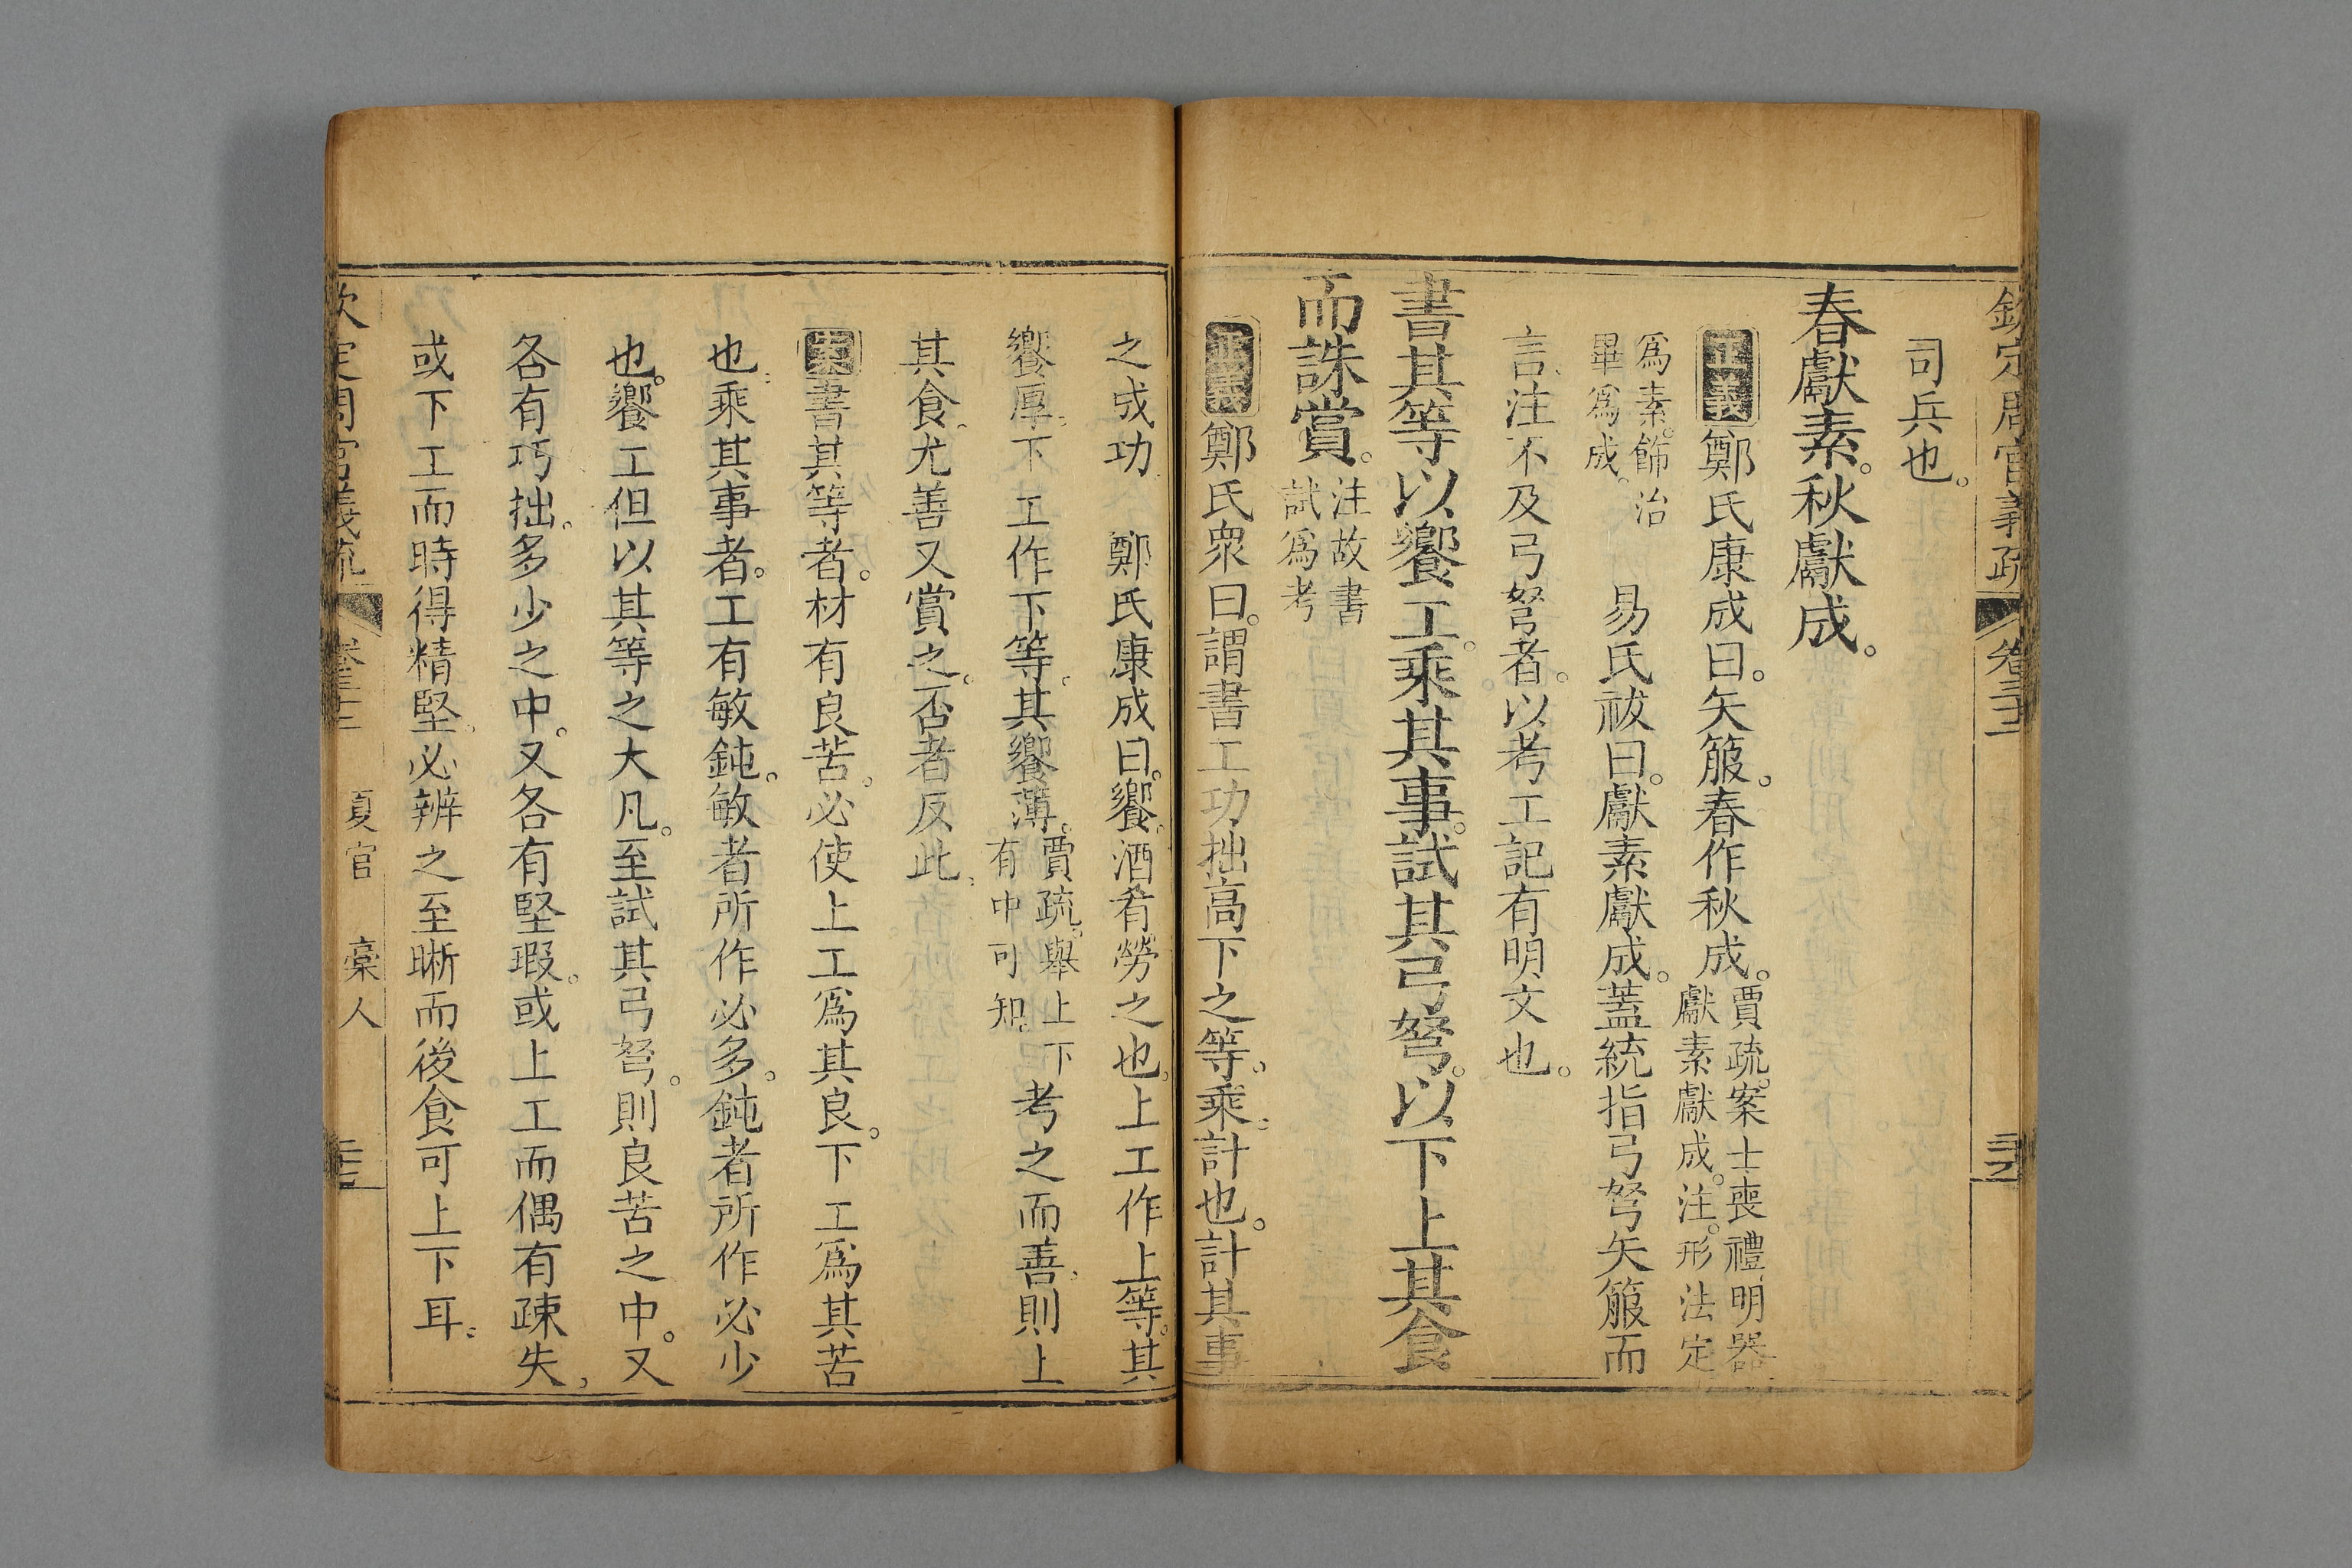 欽定周官義疏 卷三十二
司兵也。
春獻素。秋獻成。
正義 鄭氏康成曰。矢箙。春作秋成。賈疏。案士喪禮。明器獻素獻成。注。形法定
爲素。飾治畢爲成。 易氏祓曰。獻素獻成。蓋統指弓弩矢箙而
言。注不及弓弩者。以考工記有明文也。
書其等以饗工。乘其事。試其弓弩。以下上其食
而誅賞。注故書試爲考
正義 鄭氏衆曰。謂書工功拙高下之等。乘。計也。計其事
之成功 鄭氏康成曰。饗。酒肴勞之也。上工作上等。其
饗厚。下工作下等。其饗薄。賈疏。舉上下有中可知。考之而善。則上
其食。尤善又賞之。否者反此。
案 書其等者。材有良苦。必使上工爲其良。下工爲其苦
也。乘其事者。工有敏鈍。敏者所作必多。鈍者所作必少
也。饗工但以其等之大凡。至試其弓弩。則良苦之中。又
各有巧拙。多少之中。又各有堅瑕。或上工而偶有疎失。
或下工而時得精堅。必辨之至晰而後食可上下耳。
欽定周官義疏 卷三十二 夏官 稾人